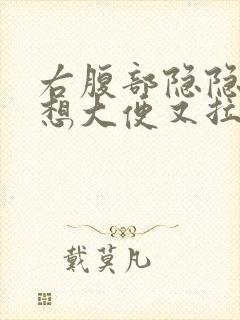 右腹部隐隐
想大便又拉
戴莫凡